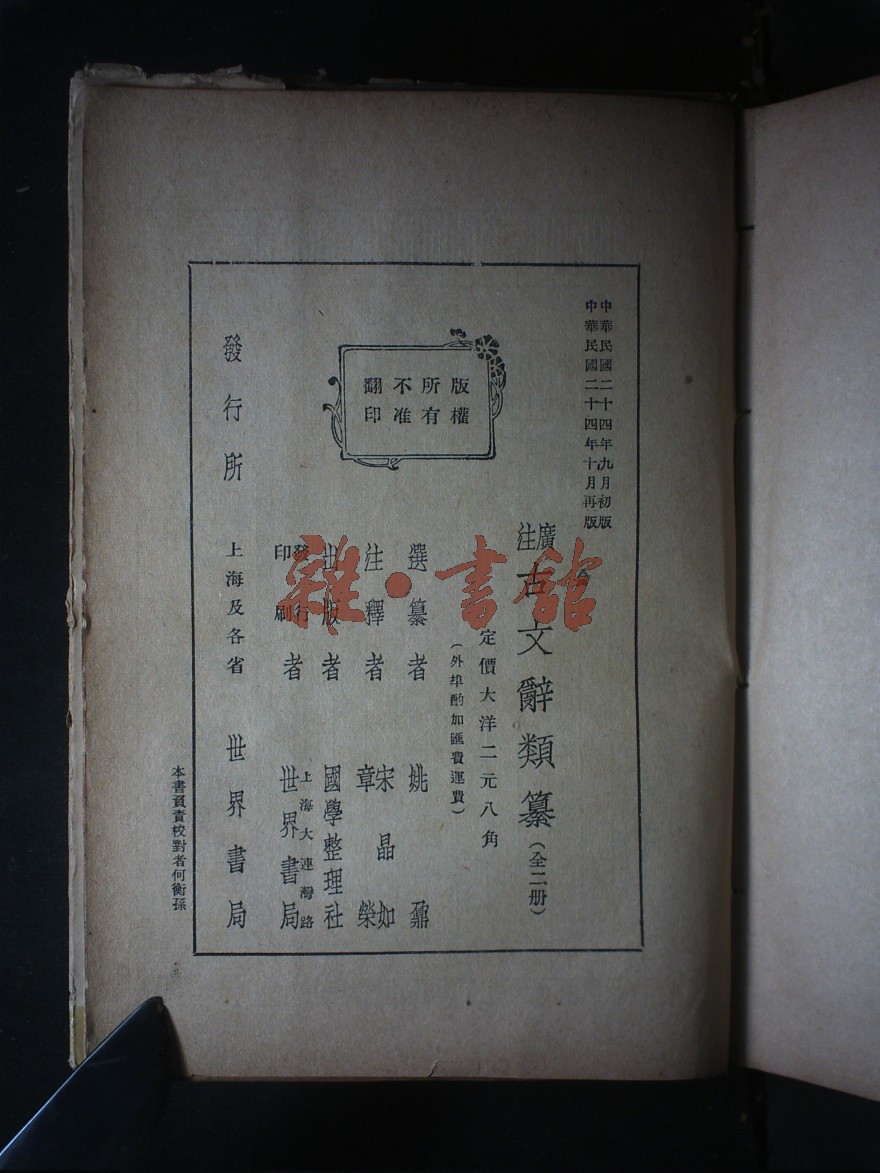 中華民國二十四年九月初版
中華民國二十四年十月再版
版權
所有
不准
翻印
廣注
古文辭類纂（全二册）
定價大洋二元八角
（外埠酌加匯費運費）
選纂者 姚鼐
注釋者 宋晶如 章榮
出版者 國學整理社
發行印刷者 上海大連灣路 世界書局
發行所 上海及各省 世界書局
本書負責校對者何衡孫
雜·書館